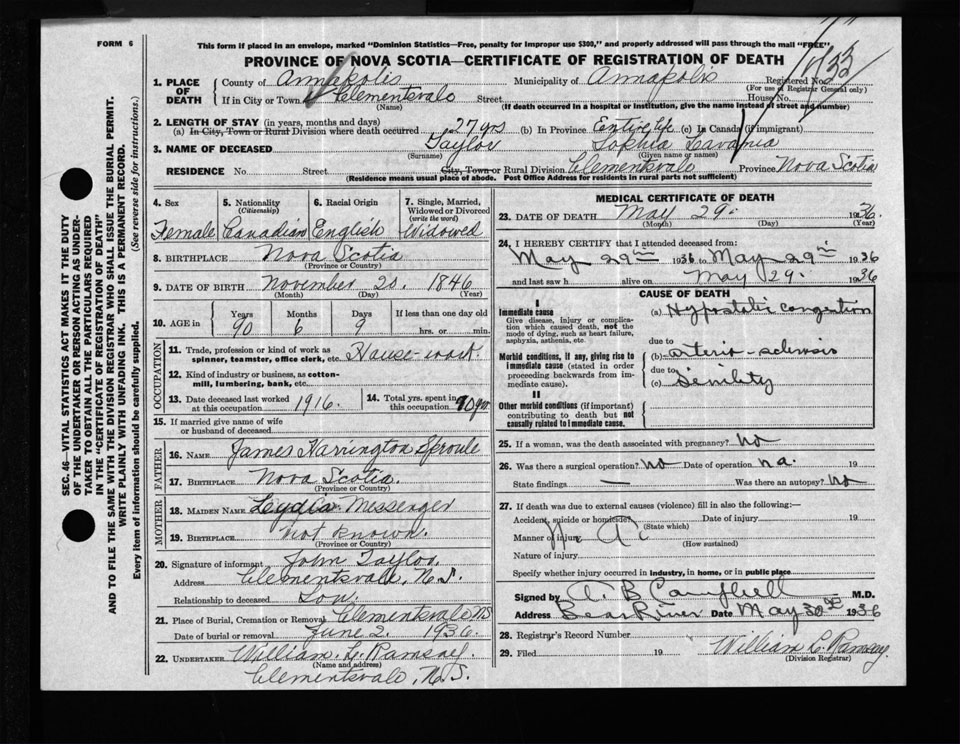 FORM 6
This form if placed in an envelope, marked "Dominion Statistics—Free, penalty for improper use $300," and properly addressed will pass through the mail "FREE"
PROVINCE OF NOVA SCOTIA—CERTIFICATE OF REGISTRATION OF DEATH
1. PLACE OF DEATH County of Annapolis Municipality of Annapolis Registered No.
(For use of Registrar General only)
If in City or Town Clementsvale Street House No.
(Name) (If death occurred in a hospital or institution, give the name instead of street and number)
2. LENGTH OF STAY (in years, months and days)
(a) In City, Town or Rural Division where death occurred 27 yrs (b) In Province Entire life (c) In Canada (if immigrant)
3. NAME OF DECEASED Taylor Sophia Lavania
(Surname) (Given name or names)
RESIDENCE No. Street City, Town or Rural Division Clementsvale Province Nova Scotia
(Residence means usual place of abode. Post Office Address for residents in rural parts not sufficient)
SEC. 46—VITAL STATISTICS ACT MAKES IT THE DUTY
OF THE UNDERTAKER OR PERSON ACTING AS UNDER-
TAKER TO OBTAIN ALL THE PARTICULARS REQUIRED
IN THE "CERTIFICATE OF REGISTRATION OF DEATH"
AND TO FILE THE SAME WITH THE DIVISION REGISTRAR WHO SHALL ISSUE THE BURIAL PERMIT.
WRITE PLAINLY WITH UNFADING INK. THIS IS A PERMANENT RECORD.
Every item of information should be carefully supplied. (See reverse side for instructions.)
4. Sex 5. Nationality (Citizenship) 6. Racial Origin 7. Single, Married, Widowed or Divorced (write the word)
Female Canadian English Widowed
8. BIRTHPLACE Nova Scotia
(Province or Country)
9. DATE OF BIRTH November 20. 1846
(Month) (Day) (Year)
10. AGE in Years Months Days If less than one day old
90 6 9 hrs. or min.
OCCUPATION
11. Trade, profession or kind of work as spinner, teamster, office clerk, etc. House-work.
12. Kind of industry or business, as cotton-mill, lumbering, bank, etc.
13. Date deceased last worked at this occupation 1916. 14. Total yrs. spent in this occupation
15. If married give name of wife or husband of deceased
FATHER
16. NAME James Harrington Sproule
17. BIRTHPLACE Nova Scotia.
(Province or Country)
MOTHER
18. MAIDEN NAME Lydia Messenger
19. BIRTHPLACE not known.
(Province or Country)
20. Signature of informant John Taylor.
Address Clementsvale, N.S.
Relationship to deceased Son.
21. Place of Burial, Cremation or Removal Clementsvale NS
Date of burial or removal June 2. 1936.
22. UNDERTAKER William. L. Ramsay.
(Name and address)
Clementsvale, N.S.
MEDICAL CERTIFICATE OF DEATH
23. DATE OF DEATH May 29. 1936.
(Month) (Day) (Year)
24. I HEREBY CERTIFY that I attended deceased from:
May 29th 1936 to May 29th 1936
and last saw h alive on May 29. 1936
CAUSE OF DEATH
I
Immediate cause
Give disease, injury or complication which caused death, not the mode of dying, such as heart failure, asphyxia, asthenia, etc.
(a) Hypostatic congestion
due to
Morbid conditions, if any, giving rise to immediate cause (stated in order proceeding backwards from immediate cause).
(b) arterio-sclerosis
due to
(c) Senility
II
Other morbid conditions (if important) contributing to death but not causally related to immediate cause.
25. If a woman, was the death associated with pregnancy? No
26. Was there a surgical operation? No Date of operation na. 19
State findings — Was there an autopsy? No
27. If death was due to external causes (violence) fill in also the following:—
Accident, suicide or homicide? Date of injury 19
(State which)
Manner of injury
(How sustained)
Nature of injury
Specify whether injury occurred in industry, in home, or in public place
Signed by A. B Campbell M.D.
Address Bear River Date May 30th 1936
28. Registrar's Record Number
29. Filed 19 William L. Ramsay.
(Division Registrar)